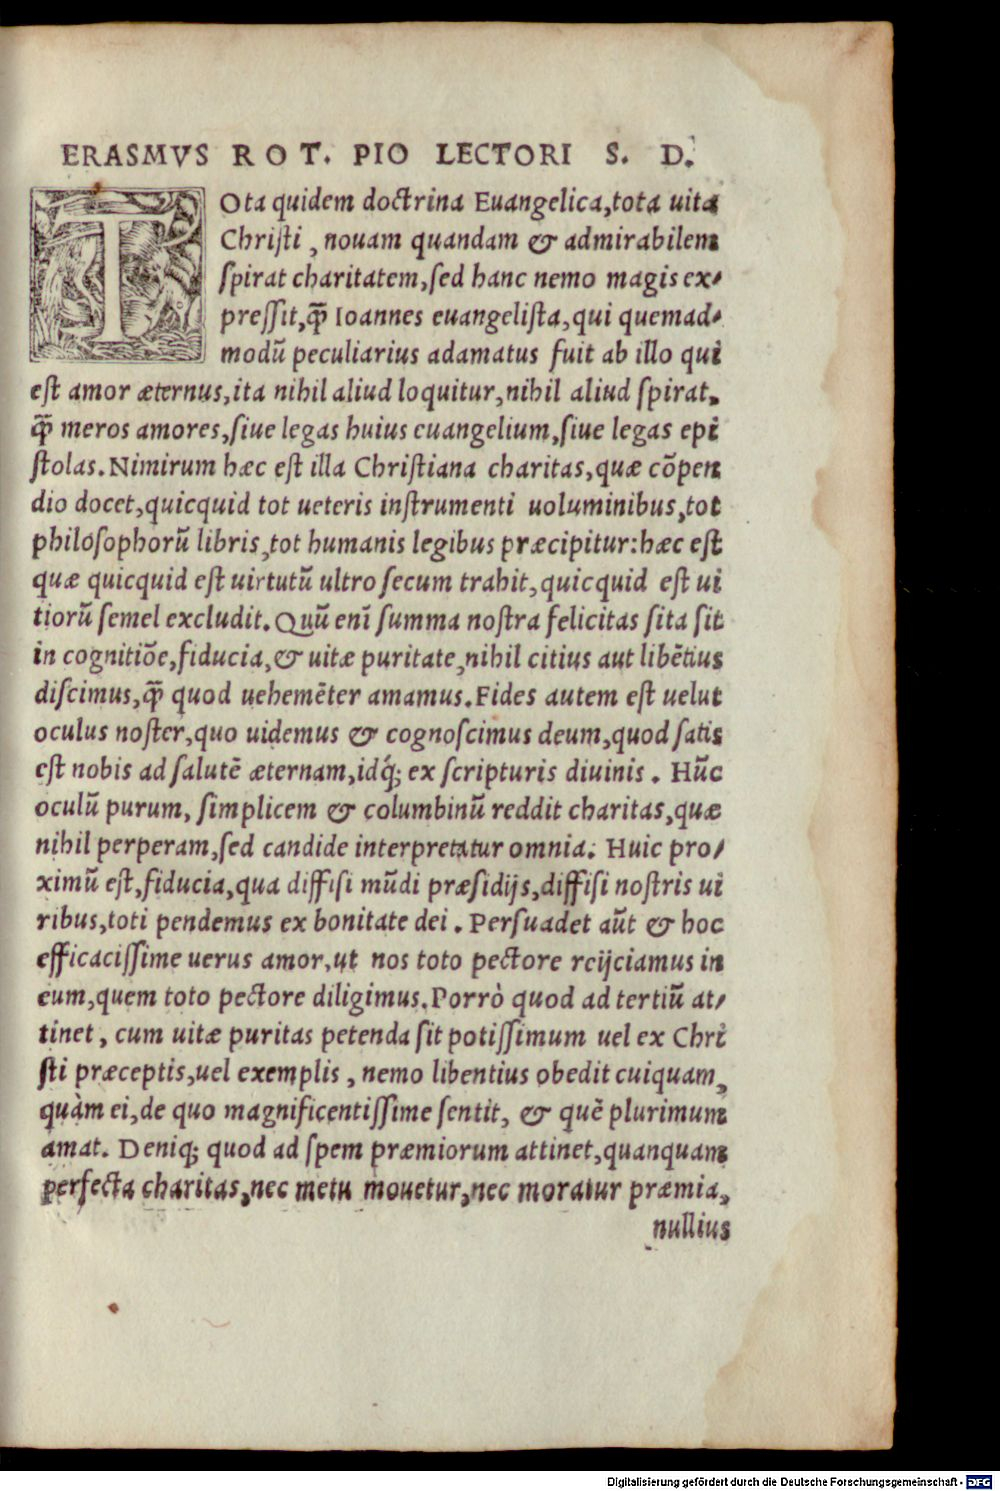 ERASMVS ROT. PIO LECTORI S. D.
TOta quidem doctrina Euangelica,tota uita
Christi , nouam quandam & admirabilem
spirat charitatem,sed hanc nemo magis ex/
pressit,q̃ Ioannes euangelista,qui quemad/
modū peculiarius adamatus fuit ab illo qui
est amor æternus,ita nihil aliud loquitur,nihil aliud spirat,
q̃ meros amores,siue legas huius euangelium,siue legas epi
stolas.Nimirum hæc est illa Christiana charitas,quæ cōpen
dio docet,quicquid tot ueteris instrumenti uoluminibus,tot
philosophorū libris,tot humanis legibus præcipitur:hæc est
quæ quicquid est uirtutū ultro secum trahit,quicquid est ui
tiorū semel excludit.Quū enī summa nostra felicitas sita sit
in cognitiōe,fiducia,& uitæ puritate,nihil citius aut libētius
discimus,q̃ quod uehemēter amamus.Fides autem est uelut
oculus noster,quo uidemus & cognoscimus deum,quod satis
est nobis ad salutē æternam,idq́; ex scripturis diuinis . Hūc
oculū purum, simplicem & columbinū reddit charitas,quæ
nihil perperam,sed candide interpretatur omnia. Huic pro/
ximū est,fiducia,qua diffisi mūdi præsidijs,diffisi nostris ui
ribus,toti pendemus ex bonitate dei . Persuadet aūt & hoc
efficacissime uerus amor,ut nos toto pectore reijciamus in
eum,quem toto pectore diligimus.Porrò quod ad tertiū at/
tinet , cum uitæ puritas petenda sit potissimum uel ex Chri
sti præceptis,uel exemplis , nemo libentius obedit cuiquam,
quàm ei,de quo magnificentissime sentit, & quē plurimum
amat. Deniq; quod ad spem præmiorum attinet,quanquam
perfecta charitas,nec metu mouetur,nec moratur præmia,
nullius
Digitalisierung gefördert durch die Deutsche Forschungsgemeinschaft - DFG